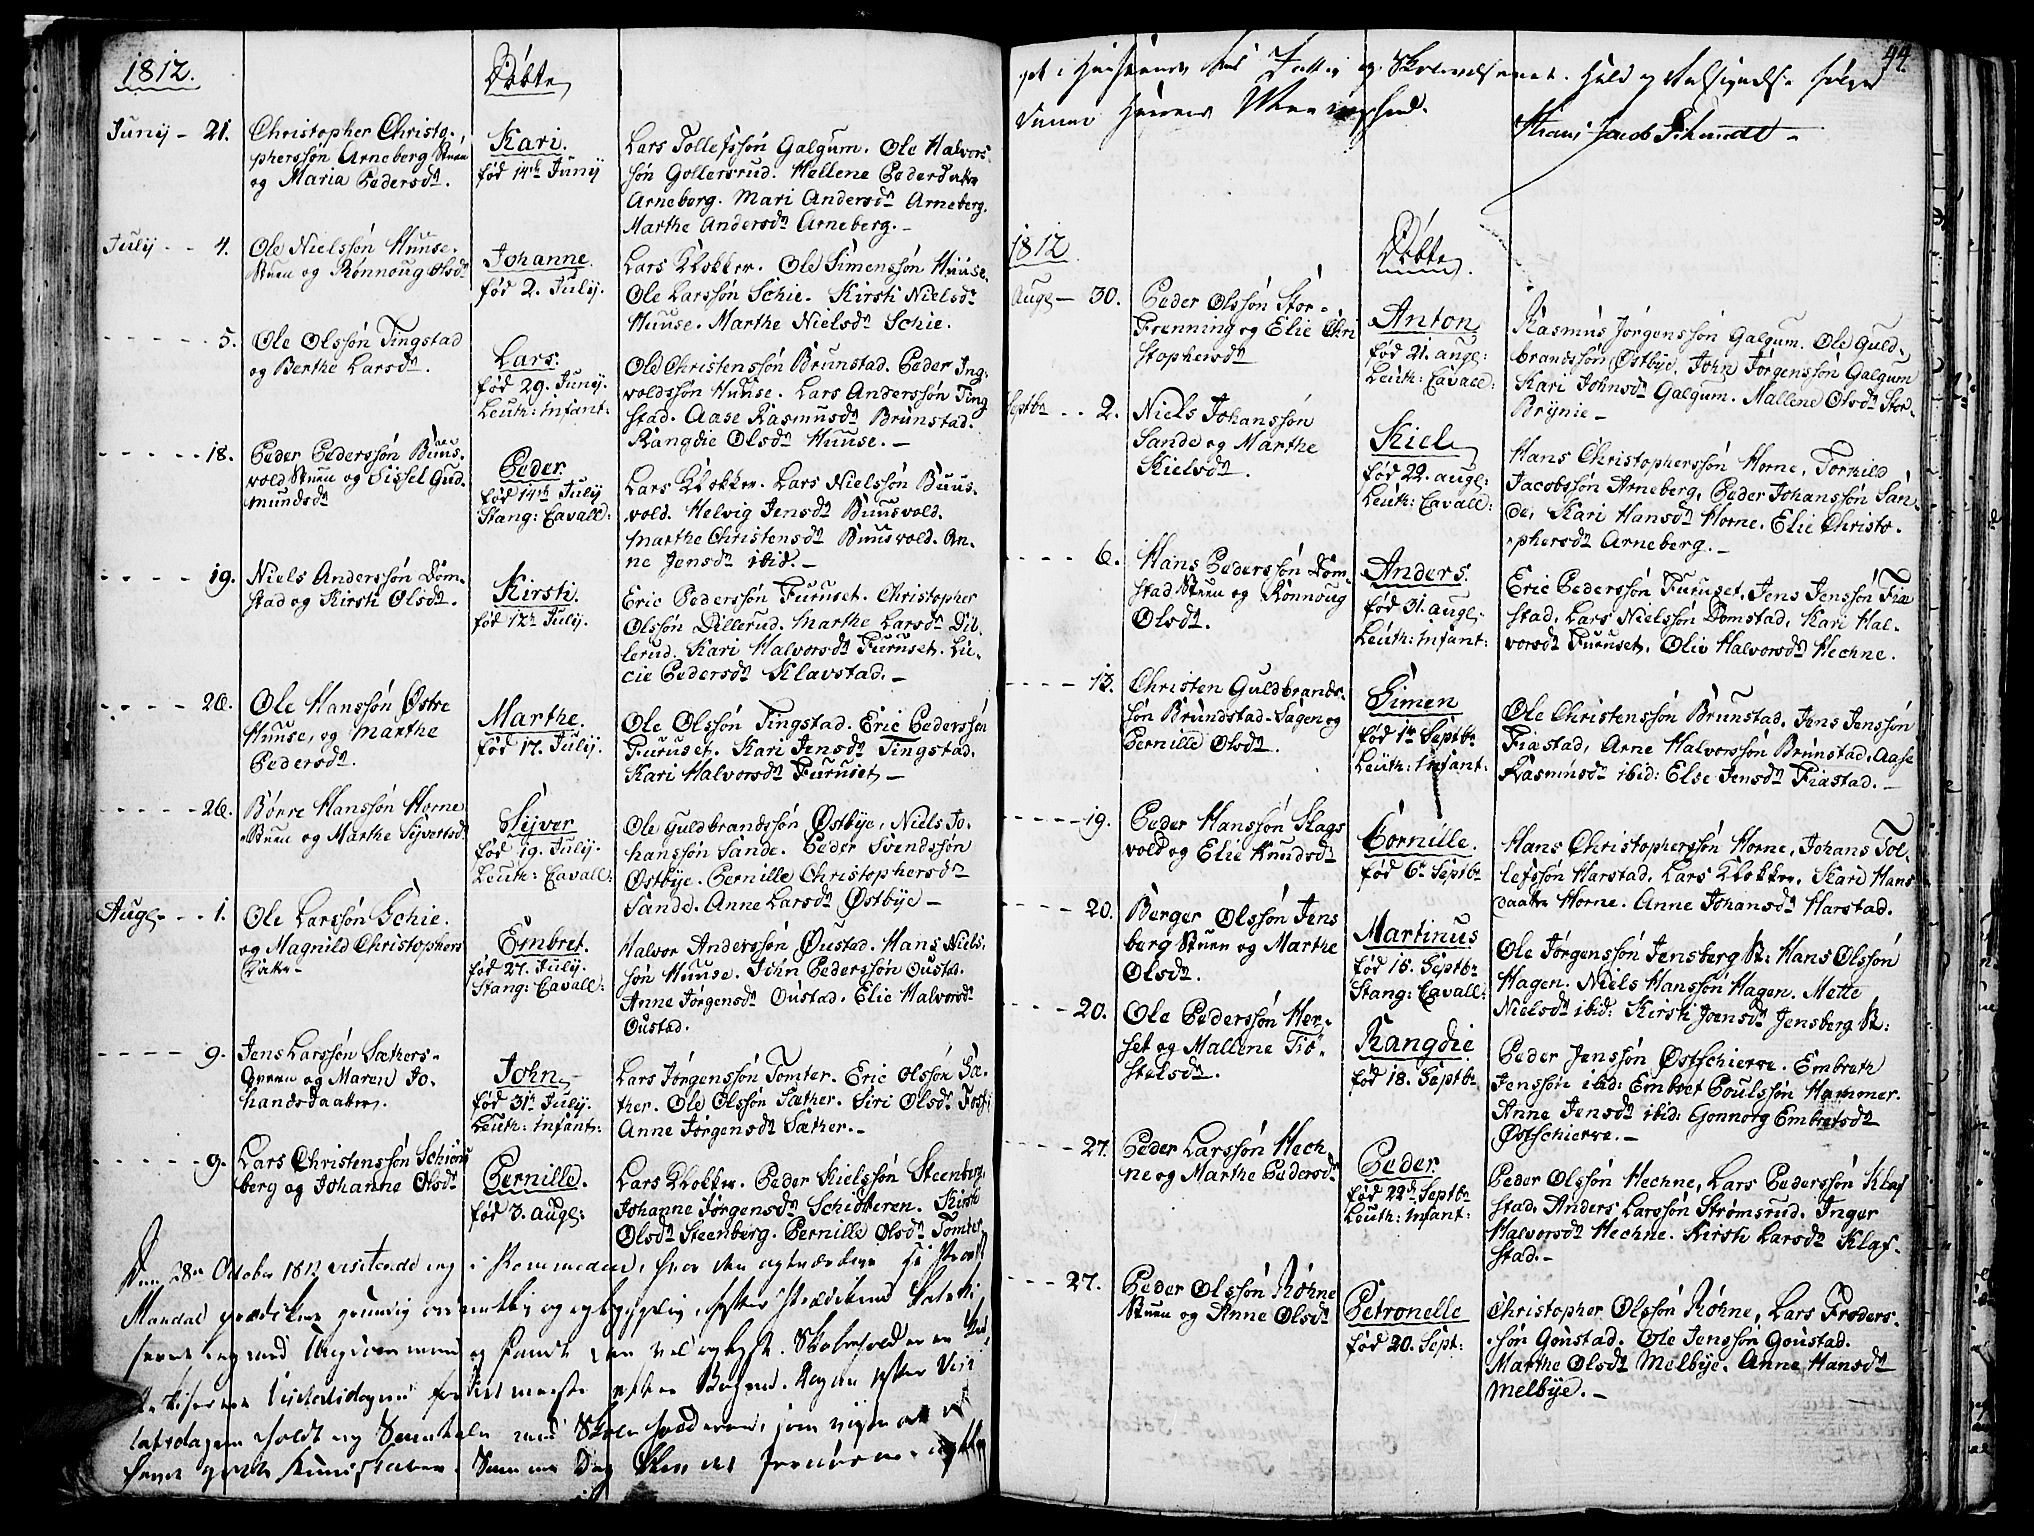 1812.
Døbte
Juny - 21.
Christopher Christo-
pherssøn Arneberg Stuen
og Maria Pedersdr.
Kari.
fød 14de Juny
Lars Tollefssøn Galgum. Ole Halvors-
søn Gollersrud. Hellene Pedersdatter
Arneberg. Mari Andersdr Arneberg.
Marthe Andersdr Arneberg. -
July - - 4.
Ole Nielssøn Huuse-
Stuen og Rønnoug Olsdr
Johanne.
fød 2. July.
Lars Klokker. Ole Simenssøn Huuse.
Ole Larssøn Schie. Kirsti Nielsdr
Huuse. Marthe Nielsdr Schie.
- - - - - 5.
Ole Olssøn Tingstad
og Berthe Larsdr.
Lars.
fød 29. Juny.
Leuth: Infant:
Ole Christenssøn Brunstad. Peder Ing-
voldssøn Huuse. Lars Anderssøn Ting
stad. Aase Rasmusdr Brunstad.
Rangdie Olsdr Huuse. -
- - - - - 18.
Peder Pederssøn Buus-
vold Stuen og Sissel Gud-
mundsdr
Peder
fød 14de July
Stang: Cavall:
Lars Klokker. Lars Nielssøn Buus-
vold. Helvig Jensdr Buusvold.
Marthe Christensdr Buusvold. An-
ne Jensdr ibid. -
- - - - 19.
Niels Anderssøn Dom-
stad og Kirsti Olsdr.
Kirsti.
fød 12te July.
Eric Pederssøn Furuset. Christopher
Olssøn Dillerud. Marthe Larsdr Dil-
lerud. Kari Halvorsdr Furuset. Lu-
cie Pedersdr Klavstad. -
- - - - 26.
Ole Hanssøn Østre
Huuse, og Marthe
Pedersdr.
Marthe.
fød 17. July.
Ole Olssøn Tingstad. Eric Pederssøn
Furuset. Kari Jensdr Tingstad.
Kari Halvorsdr Furuset -
- - - - - 26.
Børre Hanssøn Horne
Stuen og Marthe Sijvertsdr
Sijver
fød 19. July.
Leuth: Cavall:
Ole Guldbrandssøn Østbye, Niels Jo-
hanssøn Sande. Peder Svendssøn
Østbye. Pernille Christophersdr
Sande. Anne Larsdr Østbye -
Aug. - - 1.
Ole Larssøn Schie.
og Magnild Christophers
Datter-
Embret.
fød 27. July.
Stang: Cavall:
Halvor Anderssøn Oustad. Hans Niels-
søn Huuse. John Pederssøn Oustad.
Anne Jørgensdr Oustad. Elie Halvorsdr
Oustad.
- - - - 9.
Jens Larssøn Sæthers-
og Maren Jo-
hansdaatter.
John
fød 31te July.
Leuth: Infant:
Lars Jørgenssøn Tomter. Eric Olssøn Sæ-
ther. Ole Olssøn Sæther. Siri Olsdr
Anne Jørgensdr Sæther. -
- - - - - 9.
Lars Christenssøn Schiøns
berg og Johanne Olsdr
Pernille.
fød 3. Aug:
Lars Klokker. Peder Kielssøn Steenberg.
Johanne Jørgensdr Schiøtteren. Kirsti
Olsdr Steenberg. Pernille Olsdr Tomter
Den 28de October 1812 visiterede jeg i Rommedal, hvor den agtværdige
Mandal prædikede grundig
med
Skoleholderen
Visitatsdagen
holdt jeg Samtale med Skoleholderne, som
Kundskaber. Samme Dag
94.
og Skolevæsenet. Held og Velsignelse følge
denne Herrens Menighed.
Hans Jacob Schmidt -
1812
Døbte
Aug - 30.
Peder Olssøn Stor-
Frenning og Elie Chri
stophersdr
Anton
fød 21. Aug:
Leuth: Cavall:
Rasmus Jørgenssøn Galgum. Ole Guld-
brandssøn Østbye, John Jørgenssøn Galgum
Kari Johnsdr Galgum. Mallene Olsdr Stor-
Brynie -
Septbr - - 2.
Niels Johanssøn
Sande og Marthe
Kielsdr.
Kiel
fød 22. Aug:
Leuth: Cavall:
Hans Christopherssøn Horne, Tormild
Jacobssøn Arneberg, Peder Johanssøn San-
de, Kari Hansdr Horne. Elie Christo-
phersdr Arneberg. -
- - - - 6.
Hans Pederssøn Dom-
stad Stuen og Rønnoug
Olsdr.
Anders.
fød 31. Aug:
Leuth: Infant:
Eric Pederssøn Furuset. Jens Jenssøn Fiæ
stad, Lars Nielssøn Domstad, Kari Hal-
vorsdr Furuset. Olie Halvorsdr Hechne.
- - - - 13.
Christen Guldbrands-
søn Brundstad-Sagen og
Pernille Olsdr.
Simen
fød 1te Septbr
Leuth: Infant:
Ole Christenssøn Brunstad, Jens Jenssøn
Fiæstad, Arne Halvorssøn Brunstad. Aase
Rasmusdr ibid: Else Jensdr Fiæstad. -
- - - - - 19.
Peder Hanssøn Skags
vold og Elie Knudsdr
Pernille.
fød 6te Septbr
Hans Christopherssøn Horne, Johans Tol-
lefssøn Harstad. Lars Klokker. Kari Hans
daatter Horne. Anne Johansdr Harstad.
- - - - 20.
Berger Olssøn Jens
berg Stuen og Marthe
Olsdr.
Martinus
fød 16. Septbr
Stang: Cavall:
Ole Jørgenssøn Jensberg St: Hans Olssøn
Hagen. Niels Hanssøn Hagen. Mette
Nielsdr ibid: Kirsti Joensdr Jensberg St:
- - - - 20.
Ole Pederssøn Her-
set og Mallene Tiø-
stelsdr.
Rangdie
fød 18. Septbr
Peder Jenssøn Østschierre. Embreth
Jenssøn ibid: Embret Poulssøn Hammer.
Anne Jensdr ibid: Gonnorg Embretsdr
Østschierre. -
- - - - 27.
Peder Larssøn Hech
ne og Marthe Pedersdr
Peder
fød 22de Septbr
Leuth: Infant:
Peder Olssøn Hechne, Lars Pederssøn Klaf
stad. Anders Larssøn Strømsrud. Inger
Halvorsdr Hechne. Kirsti Larsdr Klaf-
stad. -
- - - 27.
Peder Olssøn Røhne
Stuen og Anne Olsdr
Petronelle
fød 20. Sept:
Christopher Olssøn Røhne, Lars Froders-
søn Goustad. Ole Jenssøn Goustad.
Marthe Olsdr Melbye. Anne Hansdr
Melbye. -